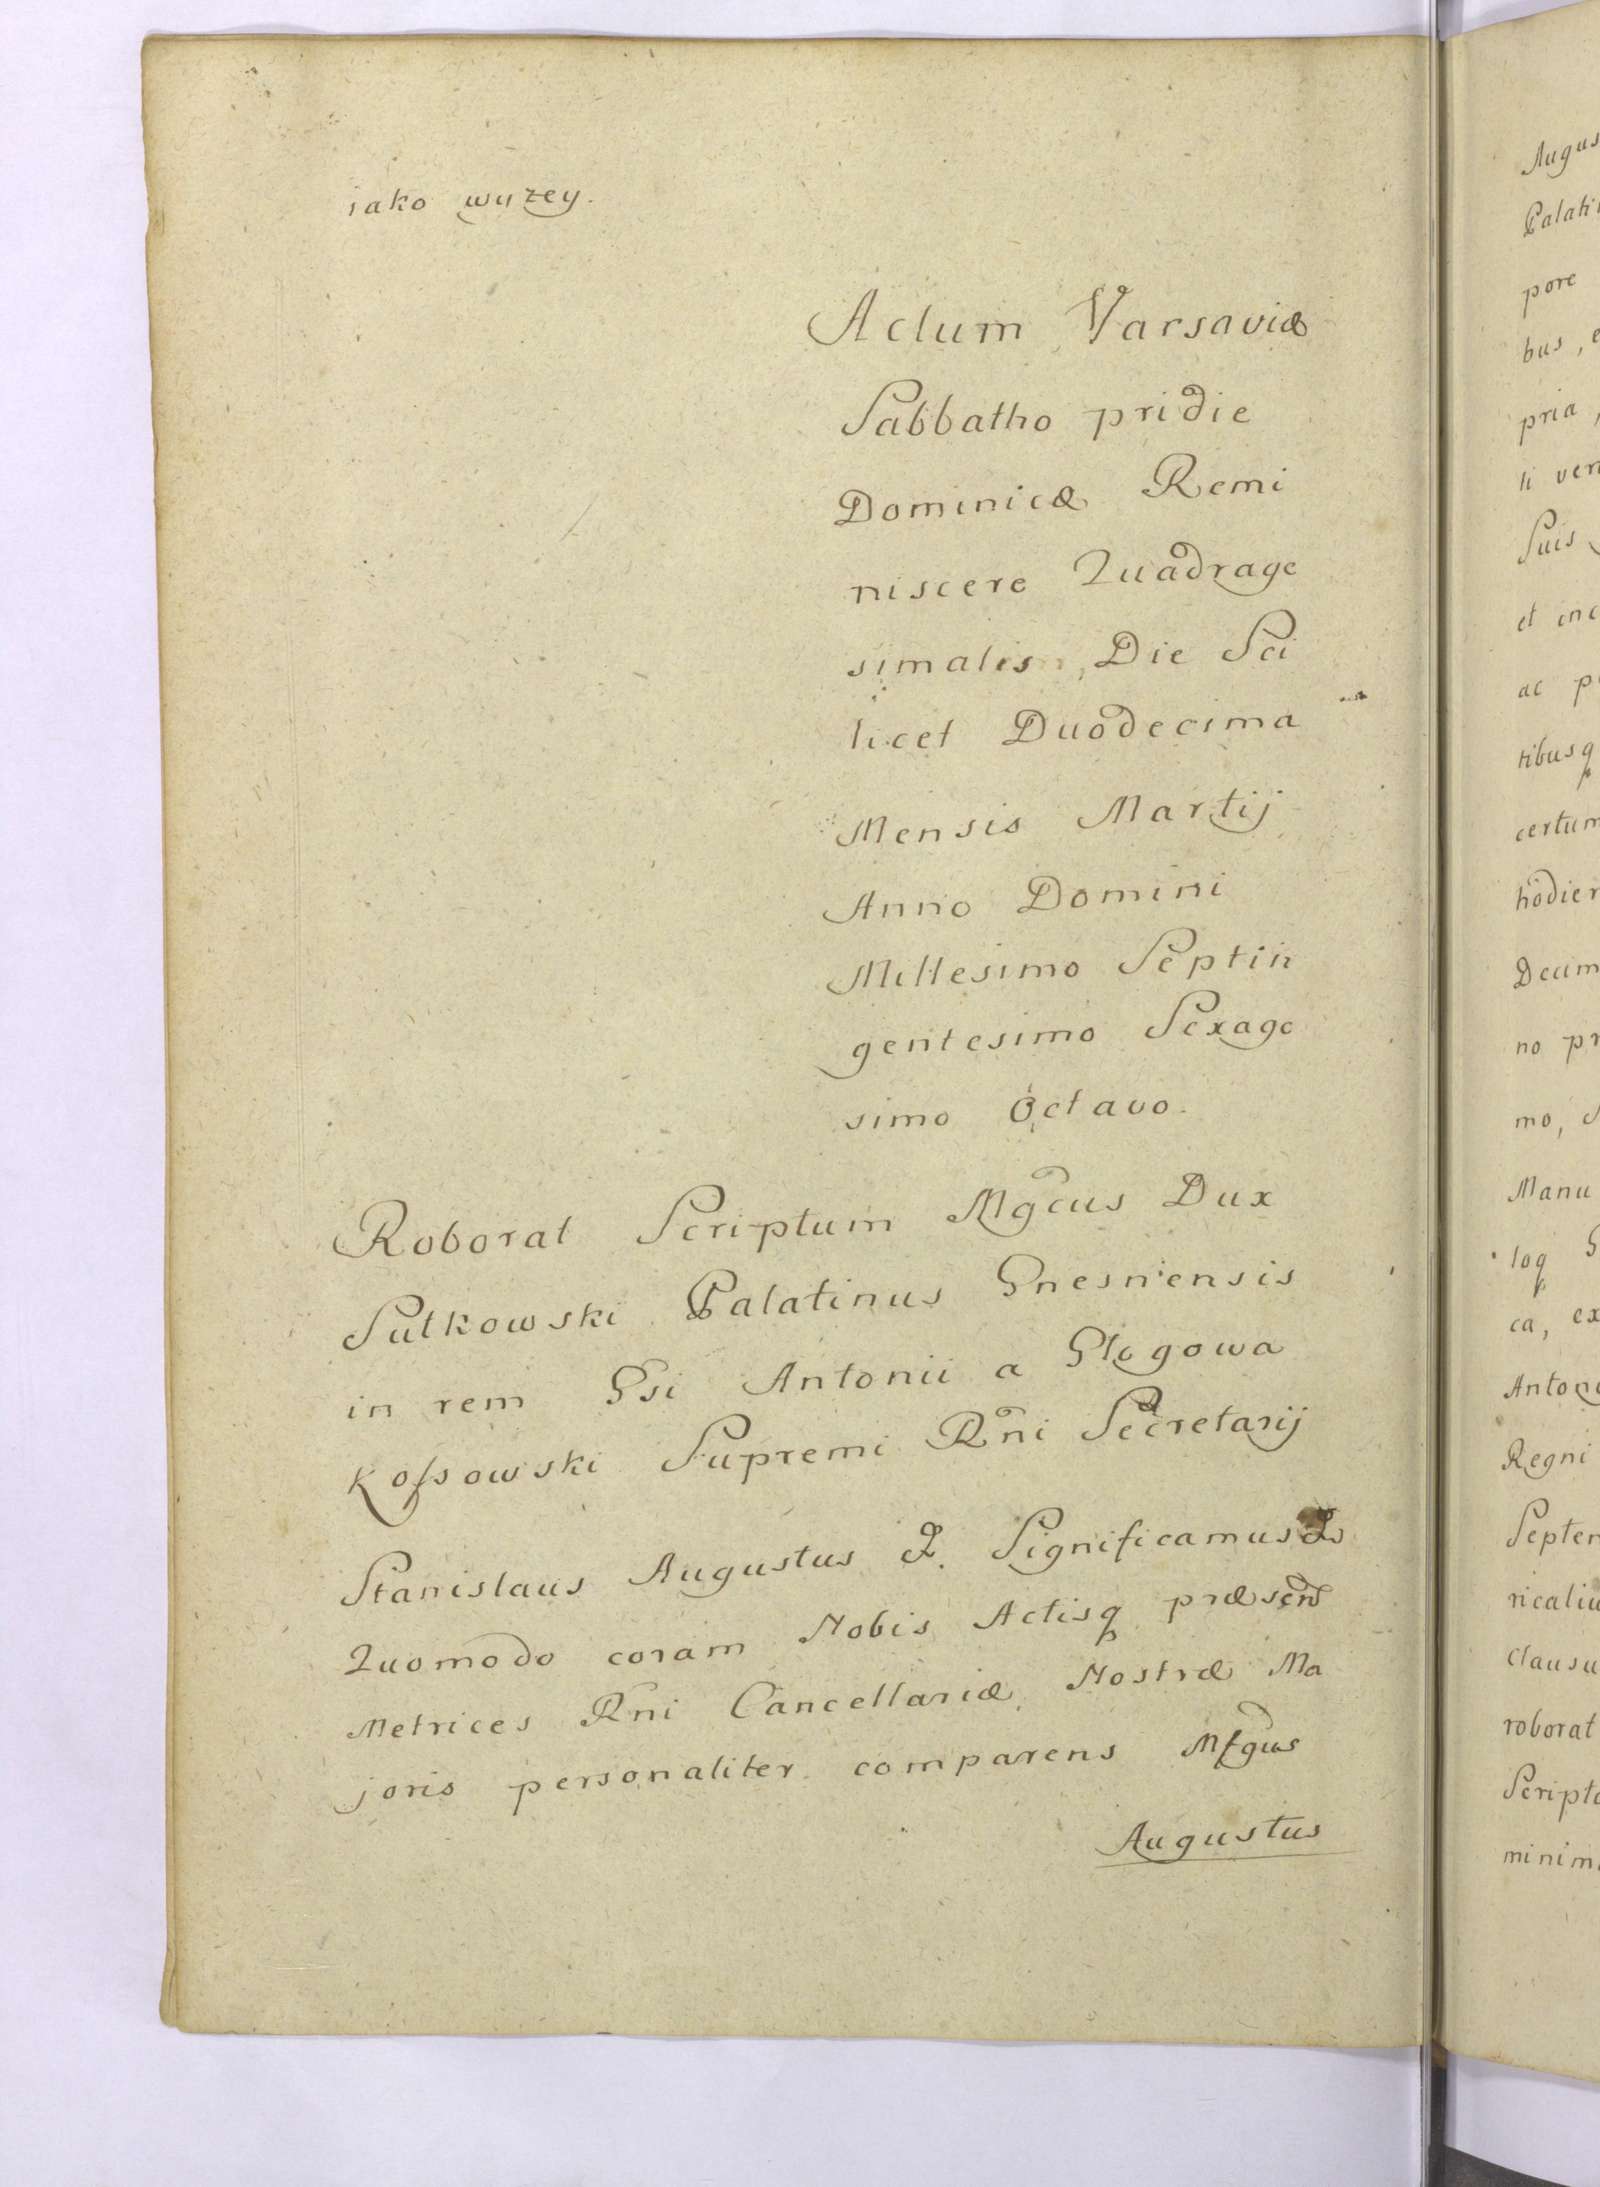 iako wyzey.
Actum Varsaviæ
Sabbatho pridie
Dominicæ Remi
niscere Quadrage
simalis, Die Sci
licet Duodecima
Mensis Martij
Anno Domini
Millesimo Septin
gentesimo Sexage
simo Octavo.
Roborat Scriptum Mgcus Dux
Sułkowski Palatinus Gnesnensis
in rem Gsi Antonii a Głogowa
Kossowski Supremi Rni Secretarij
Stanislaus Augustus &. Significamus &
Quomodo coram Nobis Actisq præsen
Metrices Rni Cancellariæ Nostræ Ma
joris personaliter comparens
Augustus
Augus
Palati
pore
bus,
pria,
ti ver
Suis
et inc
ac p
tibusq
certum
hodier
Decim
no pr
mo,
Manu
loq
ca, ex
Antoni
Regni
Septen
ricaliu
clausu
roborat
Scripto
minim